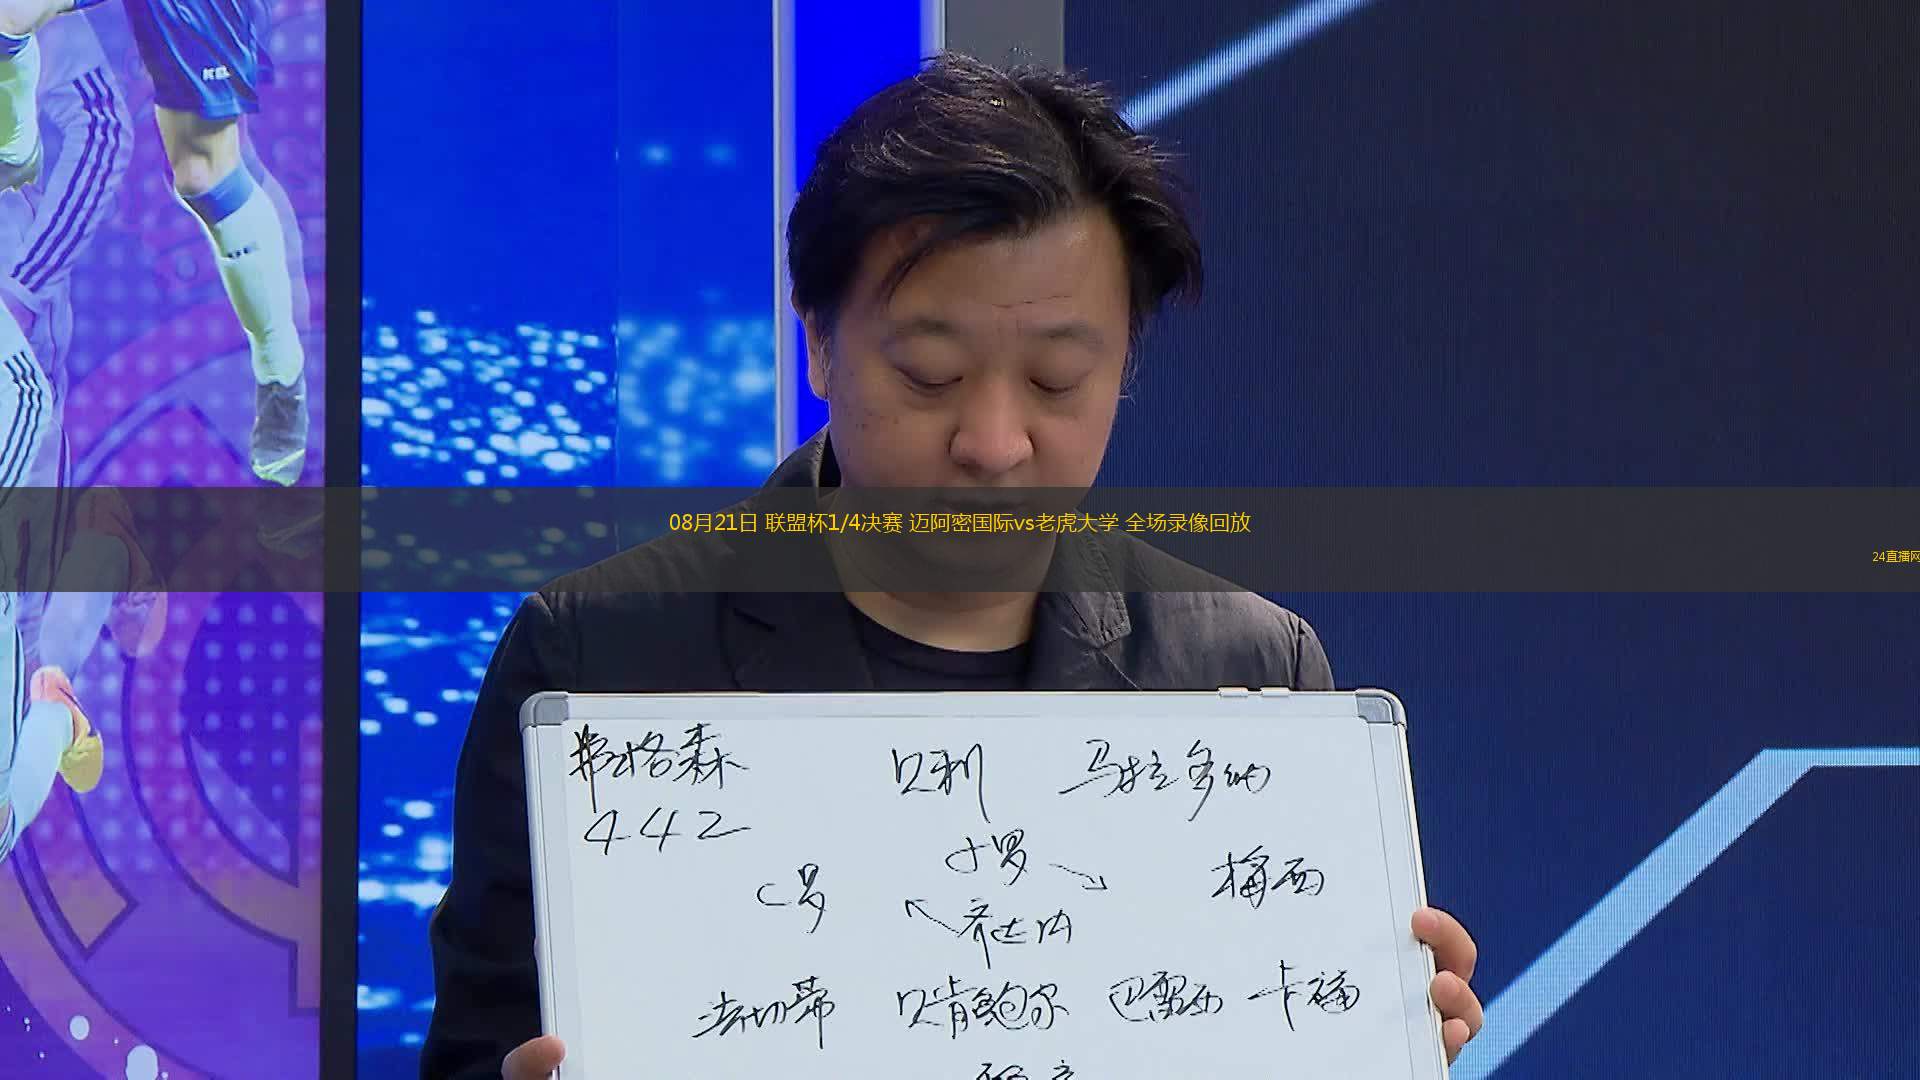 08月21日 联盟杯1/4决赛 迈阿密国际vs老虎大学 全场录像回放
24直播网
弗格森 贝利 马拉多纳
442
小罗
C罗 梅西
齐达内
法切蒂 贝肯鲍尔 巴雷西 卡福